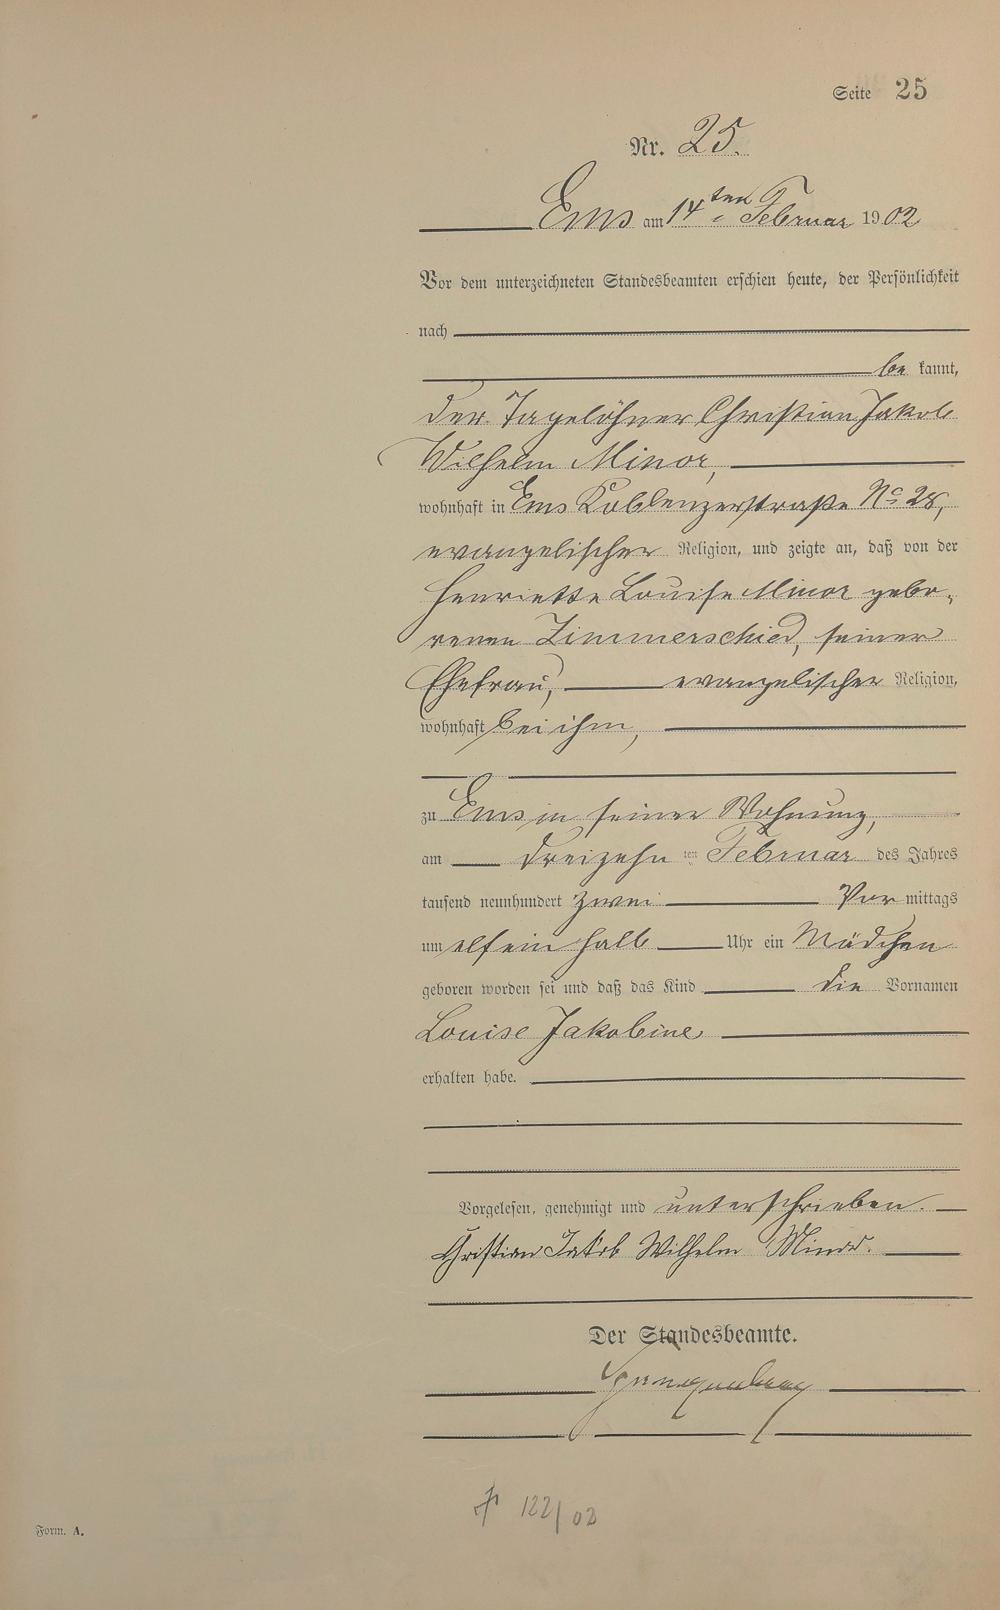 Seite 25
Nr. 25.
Ems am 14ten Februar 1902
Vor dem unterzeichneten Standesbeamten erschien heute, der Persönlichkeit
nach
be kannt,
der Tagelöhner Christian Jakob
Wilhelm Minor,
wohnhaft in Ems Koblenzerstraße No 28,
evangelischer Religion, und zeigte an, daß von der
Henriette Louise Minor gebo-
renen Zimmerschied, seiner
Ehefrau, evangelischer Religion,
wohnhaft bei ihm,
zu Ems in seiner Wohnung,
am dreizehn ten Februar des Jahres
tausend neunhundert zwei Vor mittags
um elf ein halb Uhr ein Mädchen
geboren worden sei und daß das Kind die Vornamen
Louise Jakobine
erhalten habe.
Vorgelesen, genehmigt und unterschrieben.
Christian Jakob Wilhelm Minor.
Der Standesbeamte.
† 122/02
Form. A.